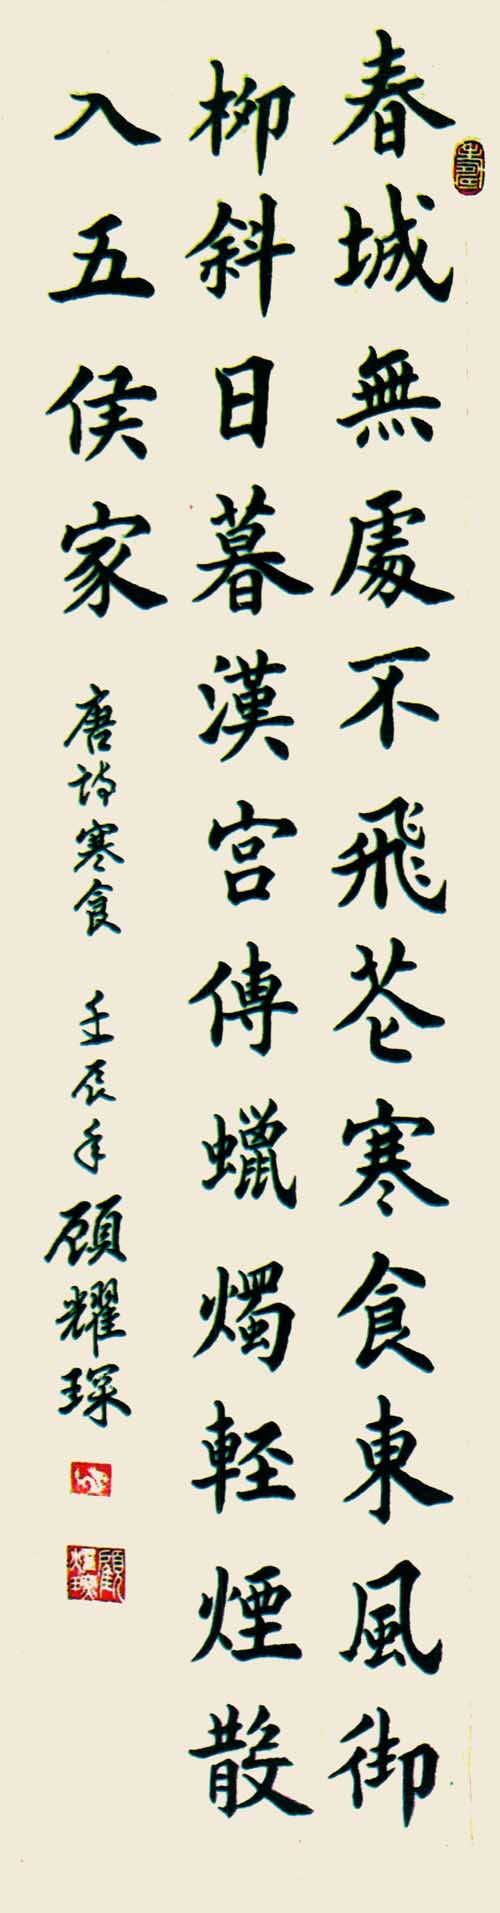 春城無處不飛花寒食東風御
柳斜日暮漢宮傳蠟燭輕煙散
入五侯家
唐詩寒食 壬辰年 顧耀琛